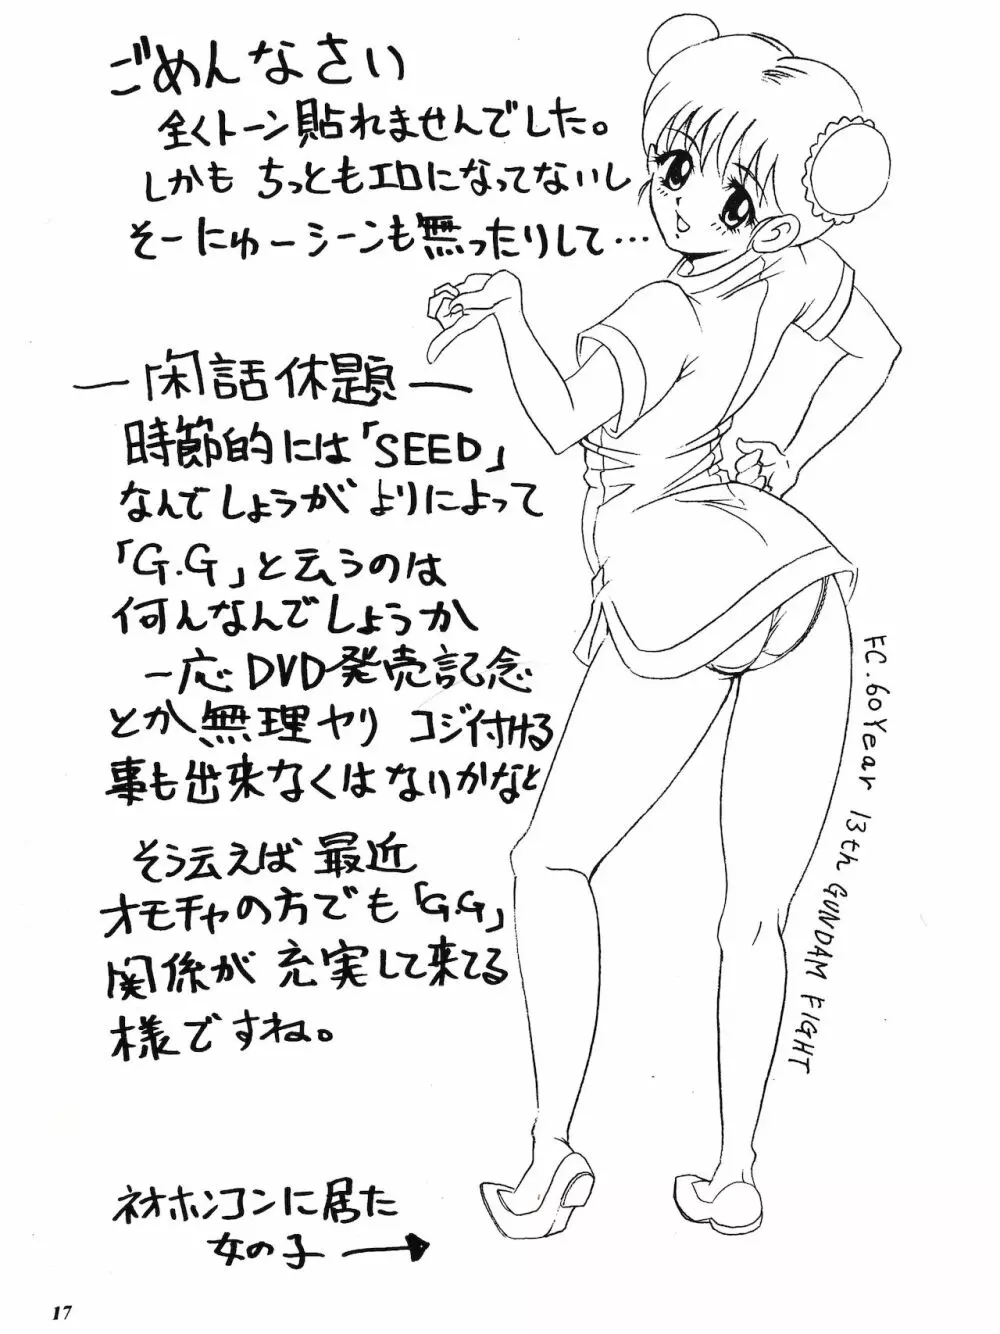 ごめんなさい
全くトーン貼れませんでした。
しかも ちっともエロになってないし
そーにゅーシーンも無ったりして…
—閑話休題—
時節的には「SEED」
なんでしょうが よりによって
「G.G」と云うのは
何んなんでしょうか
一応DVD発売記念
とか無理ヤリ コジ付ける
事も出来なくはないかなと
そう云えば 最近
オモチャの方でも「G.G」
関係が 充実して来てる
様ですね。
ネオホンコンに居た
女の子 →
FC.60Year 13th GUNDAM FIGHT
17